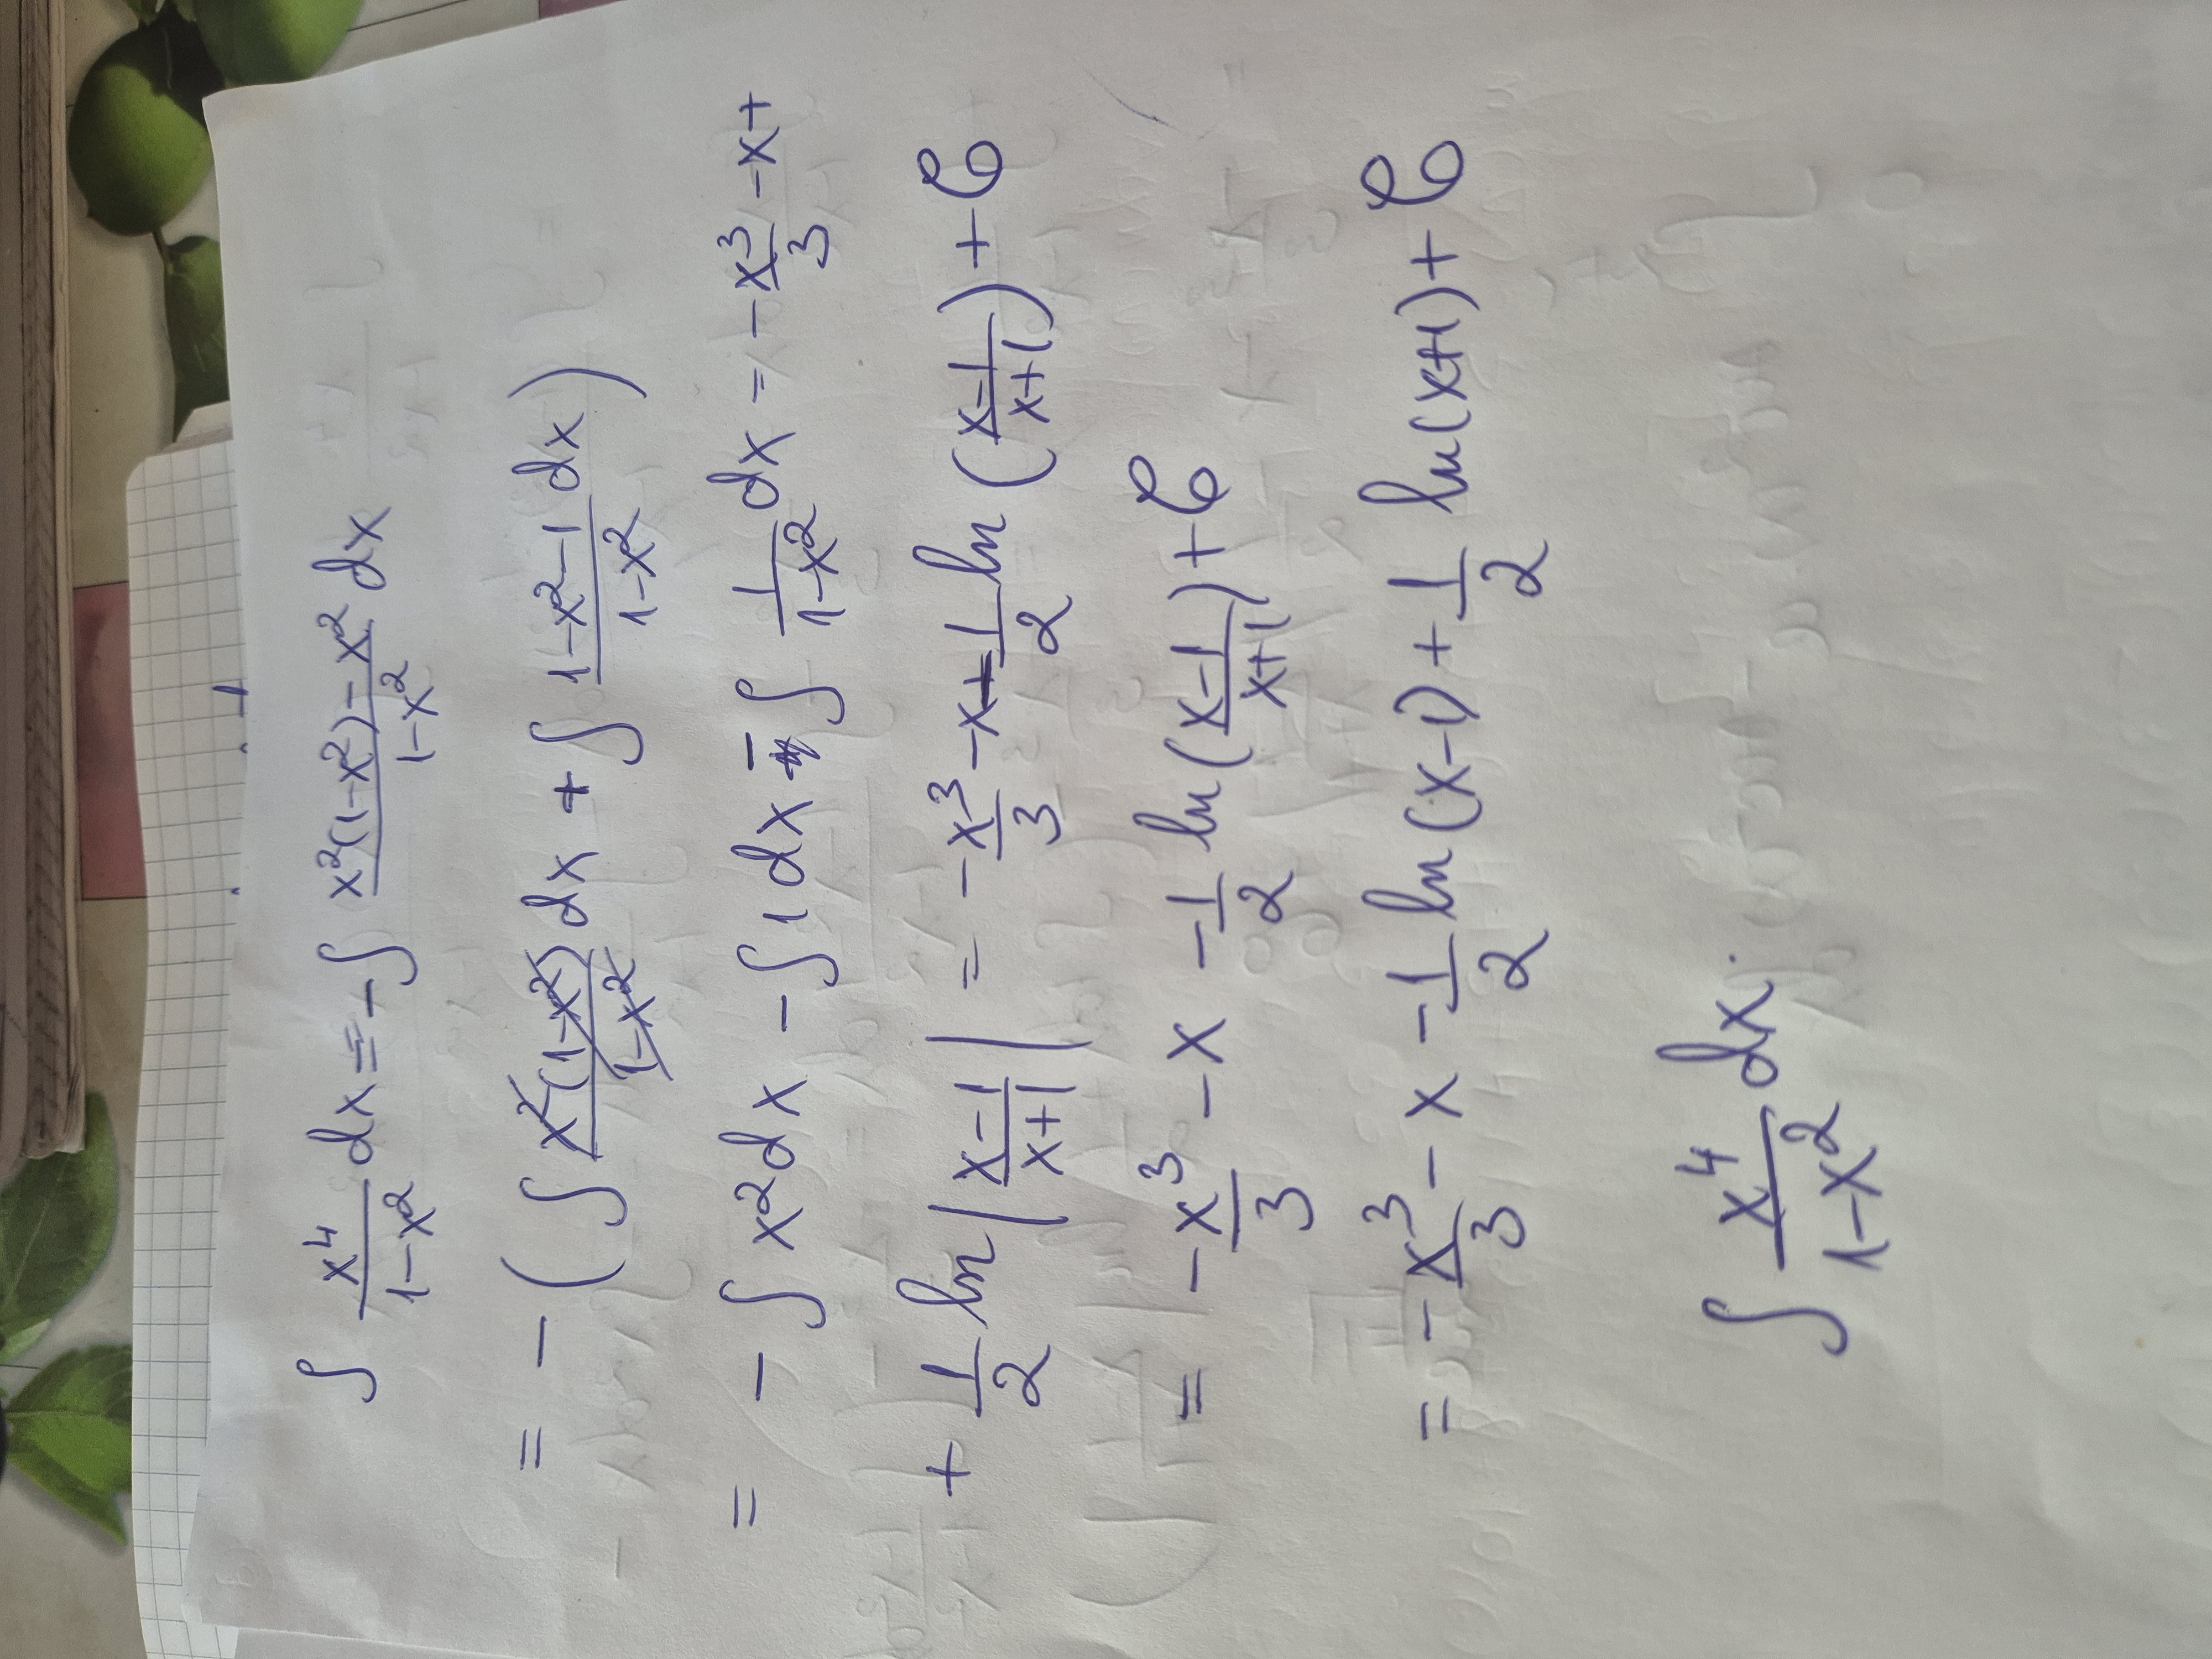 ∫ x⁴/(1-x²) dx = -∫ (x²(1-x²) - x²)/(1-x²) dx
= -( ∫ x²(1-x²)/(1-x²) dx + ∫ (1-x²-1)/(1-x²) dx )
= -∫ x² dx - ∫ 1 dx - ∫ 1/(1-x²) dx = -x³/3 - x +
+ 1/2 ln |(x-1)/(x+1)| = -x³/3 - x - 1/2 ln ((x-1)/(x+1)) + C
= -x³/3 - x - 1/2 ln((x-1)/(x+1)) + C
= -x³/3 - x - 1/2 ln(x-1) + 1/2 ln(x+1) + C
∫ x⁴/(1-x²) dx.